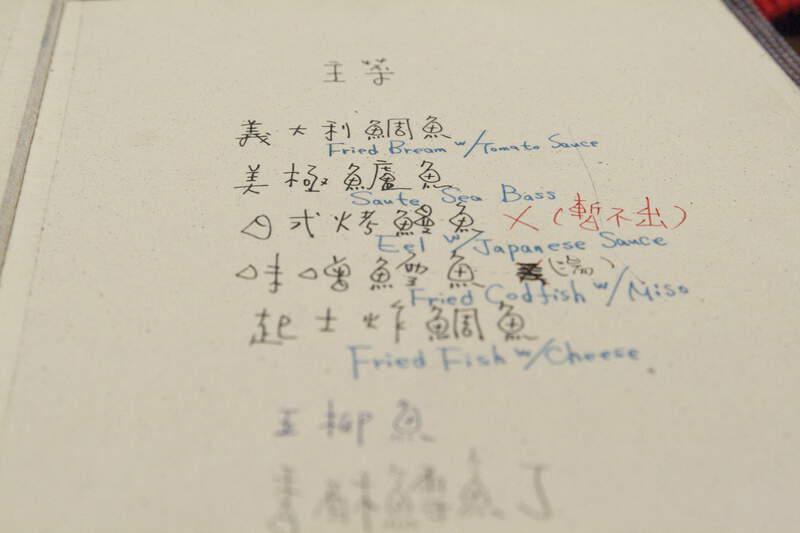 主菜
義大利鯛魚
Fried Bream w/Tomato Sauce
美極鱸魚
Saute Sea Bass
日式烤鰻魚 X(暫不出)
Eel w/Japanese Sauce
味噌鱈魚
Fried Codfish w/Miso
起士炸鯛魚
Fried Fish w/Cheese
五柳魚